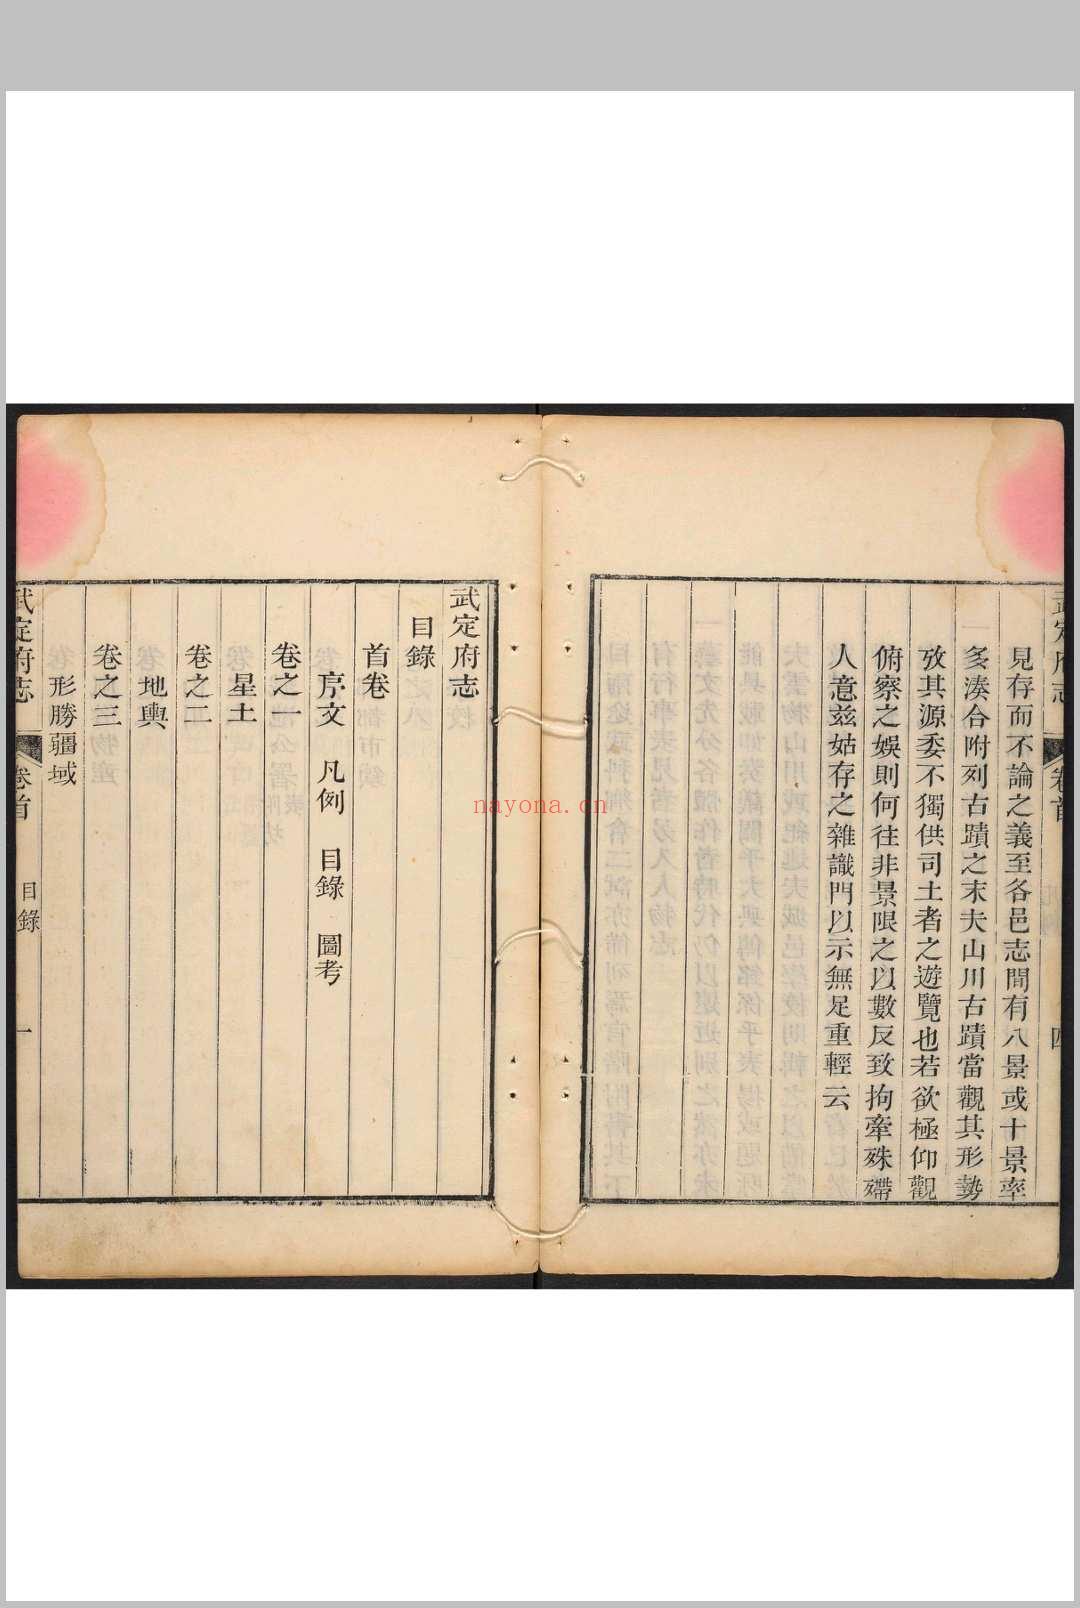 見存而不論之義至各邑志間有八景或十景率
多湊合附列古蹟之末夫山川古蹟當觀其形勢
攷其源委不獨供司土者之遊覽也若欲極仰觀
俯察之娛則何往非景限之以數反致拘牽殊礙
人意茲姑存之雜識門以示無足重輕云
武定府志
卷首
四
武定府志
目錄
首卷
序文 凡例 目錄 圖考
卷之一
星土
卷之二
地輿
卷之三
形勝疆域
武定府志
卷首
目錄
一
nayona.cn